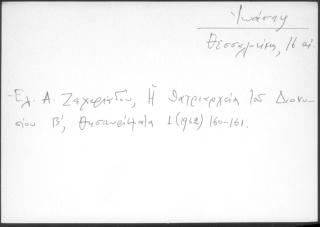 Ἰωάσαφ
Θεσσαλονίκη, 16 αἰ.
- Ἐλ. Α. Ζαχαριάδου, Ἡ Πατριαρχεία τοῦ Διονυ-
σίου Β', Θησαυρίσματα 1 (1962) 160-161.